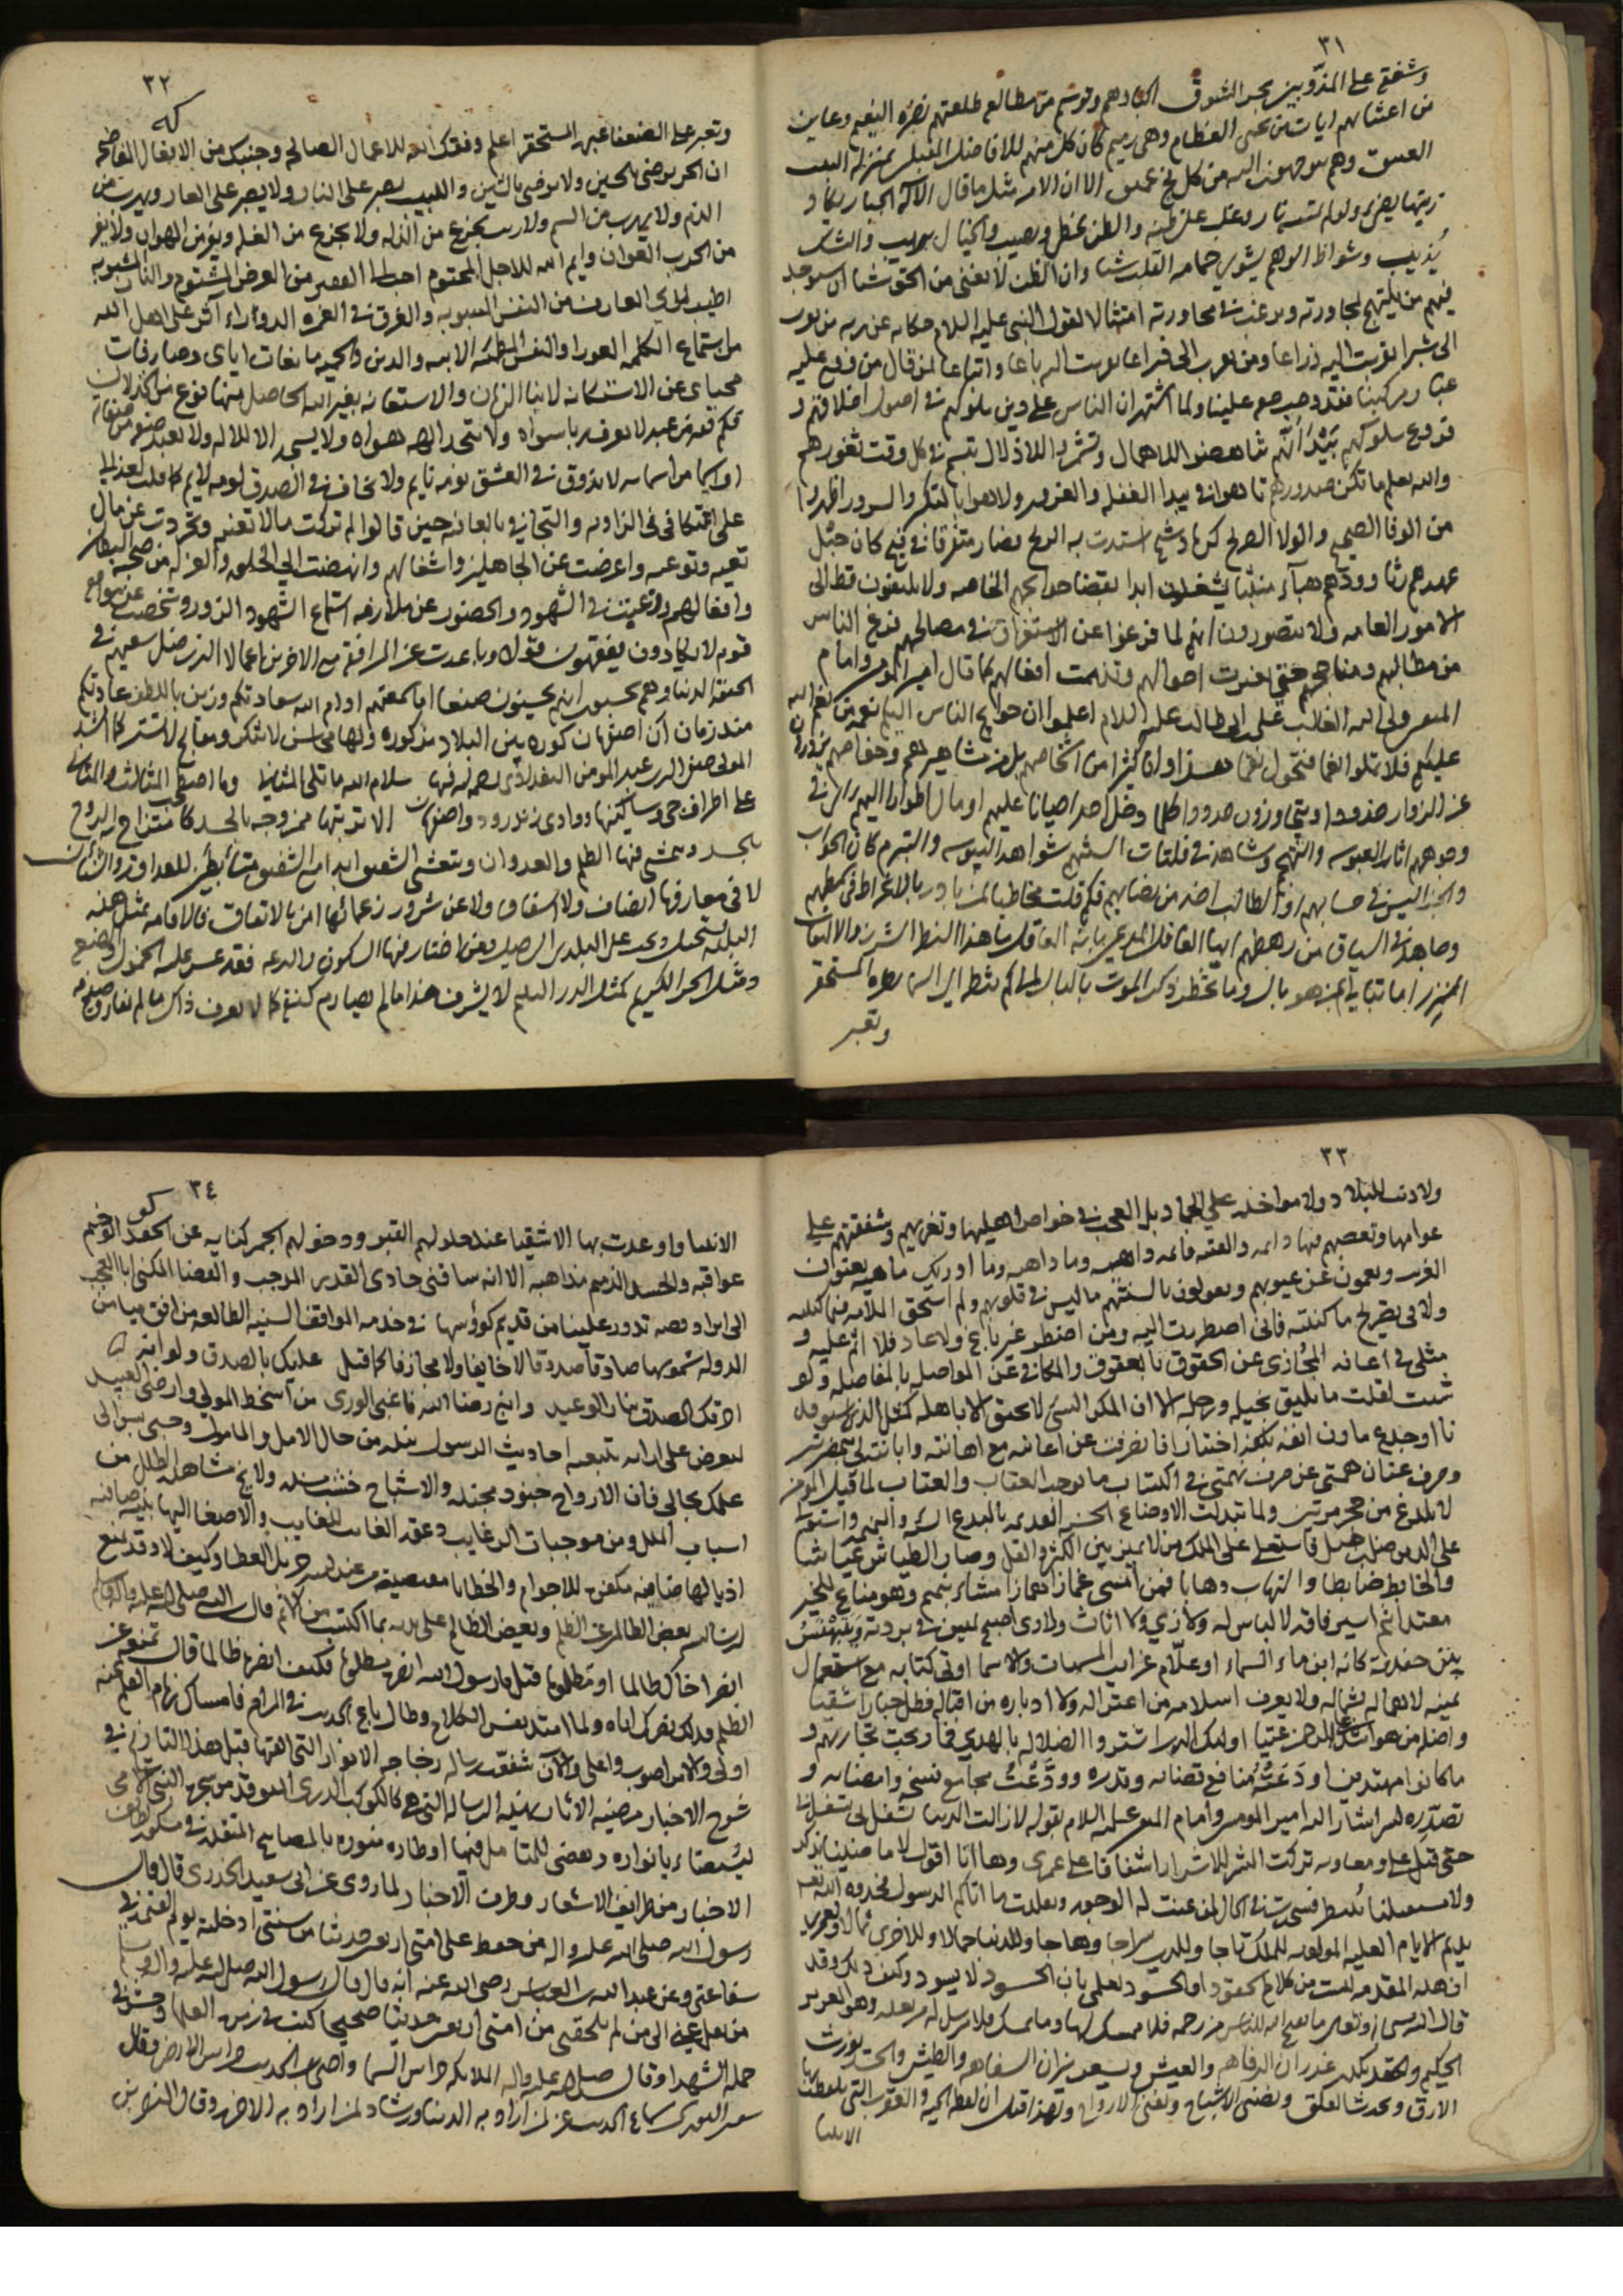 ٣١
وشفق على المذوبين بحر الشوق اكبادهم وتوسم من مطالع طلعتهم نضرة النعيم وعاين
من اعشابهم ايات من يحيى العظام وهي رميم كان كل منهم للافاضل المقبلين بمنزلة البيت
العتيق وهم متوجهون اليه من كل فج عميق الا ان الامر مثل ما قال الاله الجبار يكاد
زيتها يضيء ولو لم تمسسه نار وغلب على ظنه والظن يخطي ويصيب والخيال يريب والشك
يذيب وشواظ الوهم يشوي حمامة القلب وان الظن لا يغني من الحق شيئا ان سيوجد
فيهم من يلتهج لمجاورته ويرغب في محاورته امتثالا لقول النبي عليه السلام حكاية عن ربه من تقرب
الى شبرا تقربت اليه ذراعا ومن تقرب الى ذراعا تقربت اليه باعا واتباعا لمن قال من وقع عليه
غبار مركبنا فقد وجب حقه علينا ولما اشتهر ان الناس على دين ملوكهم في اصول اخلاقهم و
فروع سلوكهم بيد انهم شاهدوا للاهمال وتشمروا للاذلال تبسم في كل وقت ثغورهم
والله يعلم ما تكن صدورهم تاهوا في بيدا الغفلة والغرور ولاهوا بالمنكر والسرور اظهروا
من الوفا الصحيح والولا الصريح كرماد شيح استدت به الريح فصار متفرقا في فيح كان حبل
عهدهم رثا وودهم هباء منبثا يشغلون ابدا بقضا حوايجهم الخاصه ولا يلتفون قط الى
الامور العامه ولا يتصورون انهم لما فرغوا عن الاستغراق في مصالحهم فرغ الناس
من مطالبهم ومناجحهم حتى تغيرت احوالهم وتذممت افعالهم كما قال امير المومنين وامام
المتقين ولي الله الغالب علي بن ابي طالب عليه السلام اعلموا ان حوايج الناس اليكم نعمة من نعم الله
عليكم فلا تملوا نعما فتحول نقما هذا وان كثيرا من اشخاصهم بل من مشاهيرهم وخفاصهم يزورون
عن الزوار صدودا ويتجاوزون حدودا كلما دخل احد احيانا عليهم او مال اطوارا اليهم راى في
وجوههم اثار العبوسه والتهجم وشاهد في فلتات السنتهم شواهد اليبوسه والتبرم كان الجواب
والجزا ليس في حسابهم او الطالب اخذ من نصابهم فكم قلت مخاطبا لمن بادر بالانخراط في سمطهم
وجاهد في السباق من رهطهم ايها العاقل المدعي بانه العاقل ما هذا النمط الشرز والالتفات
النزر اما تبالي بمن هو بال وما يخطر ذكر الموت بالبال الى كم تنظر الى الناس نظرة المستحقر
وتعبر
٣٢
وتعبر على الضعفا عبرة المستحقر اعلم وفقك الله للاعمال الصالحه وجنبك من الافعال الفاضحه
ان الحر يرضى بالحين ولا يرضى بالشين واللبيب يصبر على النار ولا يصبر على العار ويهرب من
الذم ولا يهرب من السم ولا ريب يجزع من الذله ولا يجزع من الغله ويفر من الهوان ولا يفر
من الحرب العوان وايم الله للاجل المحتوم احب الى الفقير من العرض المشتوم والنار المشبوبه
اطيب لدى العارف من النفس المسبوبه والغرق في الغمره الدوارة آثر على اهل الله
من استماع الكلمه العورا والنفس المطمئنة الابيه والدين والحميه مانعات اياي وصارفات
محياي عن الاستكانه لابنا الزمان والاستعانه بغير الله الحاصل منها نوع من الخذلان
فكم فيه من عبد لا يعرف ربا سواه ولا يتخذ الهه هواه ولا يسجد الا للاله ولا يعبد صنو من صفاته
او اسما من اسمائه لا يذوق في العشق نومة نايم ولا يخاف في الصدق لومة لايم كما قلت لعذيلي
على اعتكافي في الزاويه والتجاي بالعافيه حين قالوا لم تركت مالا تعنيه وتجردت عن مال
تعيه وتوعيه واعرضت عن الجاهلين واشغالهم وانهضت الى الخلوه والعزله من صحبة البطالين
وافعالهم ورغبت في الشهود والحضور عن ملازمة استماع الشهود الزور وشخصت عن سوامع
قوم لا يكادون يفقهون قولا وباعدت عن المرافقة مع الاخرين اعمالا الذين ضل سعيهم في
الحيوة الدنيا وهم يحسبون انهم يحسنون صنعا اما سمعتم ادام الله سعادتكم وزين باللطف عادتكم
منذ زمان ان اصفهان كورة بين البلاد مذكوره ولها محاسن لا تنكر ومقابح لا تستر كما انشد
المولى صفي الدين عبد المومن البغدادي نصحه لله فيها سلام الله ما تلي المثاني وما اصطحب المثالث والمثاني
على اطراف جي وساكنيها ووادي زندرود واصفهان الا تربتها ممزوجه بالحسد كامتزاج الروح
بالجسد ويتمشي فيها الظلم والعدوان ويتعشى الشفيق ابدا مع الشفيق متأبطين للعداوة والشنان
لا في معارفها انصاف ولا اسعاف ولا عن شرور زعمائها امن بالاتفاق فالاقامه بمثل هذه
البلده يستحيل ويجب على البلدي الرحيل ومن اختار فيها السكون والدعه فقد عسر عليه الخمول والضع
ومثل الحر الكريم كمثل الدر اليتيم لا يشرف هذا ما لم يصادم كنيفا كما لا يعرف ذاك ما لم يفارق صدفه
٣٣
ولا ذنب للبلاد ولا مواخذه على الجماد بل العجب في خواص اهليها وتغربهم وشفقتهم على
عوامها وتعصبهم فيها دايمه والفتنه قايمه داهيه وما داهيه وما ادريك ماهيه يعتبون
الغريب ويعمون عن عيوبهم ويقولون بالسنتهم ما ليس في قلوبهم ولم استحق الملامه فيما كتبته
ولاني بقريح ما كننته فاني اضطررت اليه ومن اضطر غير باغ ولا عاد فلا اثم عليه و
مثلي في اعانه المجازي عن الحقوق بالعقوق والمكافي عن المواصل بالمفاصله ولو
شئت لقلت ما يليق بحيله ورجله الا ان المكر السيئ لا يحيق الا باهله كمثل الذي استوقد
نارا وجدع مارن انفه بكفه اختيارا فانصرفت عن اعانته مع اهانته وابانته لي بمضرته
وصرف عنان همتي عن صرف نهمتي في اكتساب ما يوجب العقاب والعتاب لما قيل المومن
لا يلدغ من جحر مرتين ولما تبدلت الاوضاع الحسنه القديمه بالبدع السيئه الذميمه واستولى
على الدين من ضل فاستعلى على الملك من لا يميز بين الكثر والقل وصار الطياش عياشا
والخابط ضابطا والنهاب وهابا فمن امسى غمازا همازا مشاء بنميم وهو مناع للخير
معتد اثيم اسير فاقه لا لباس له ولا زي ولا اثاث ولا ري اصبح يميس في بردته ويتبهنس
بين حفدته كانه ابن ماء السماء او علام غرائب المسميات والاسما اوتي كتابه مع استعمال
يمينه لاهماله بشماله ولا يعرف اسلامه من اعتزاله ولا ادباره من اقباله فظل جبارا شقيا
واضل من هو اشد على الرحمن عتيا اولئك الذين اشتروا الضلاله بالهدي فما ربحت تجارتهم و
ما كانوا مهتدين اودعته منافع قضائه وقدره وودعت مجامع نسخه وامضائه و
تصدره لما اشار اليه امير المومنين وامام المتقين عليه السلام بقوله لا زالت الدنيا تنقل لي شغل
حتى قيل علي ومعاويه تركت الشر للاشرار اشفاقا على عمري وها انا اقول
يديم الايام العليه المولويه للملك تاجا وللدين سراجا وهاجا وللدنيا جمالا وللاخرى ثمالا
ان هذه المقدمه ليست من كلام الحقود او الحسود لعلمي بان الحسود لا يسود وكيف ذلك وقد
قال الله سبحانه وتعالى ما يفتح الله للناس من رحمه فلا ممسك لها وما يمسك فلا مرسل له من بعده وهو العزيز
الحكيم والحقد يكدر غدران الرفاهيه والعيش ويسعر نيران السفاهه والطيش والحسد يورث
الارق ويحدث القلق ويضني الاشباح ويفني الارواح ولهذا قيل ان لفظ الحية والعقرب التي يلفظ بها
الانبيا
٣٤
الانبيا واوعدت بها الاشقيا عند حلولهم القبور ودخولهم الجمر كنايه عن الحقد الوخيم
عواقبه والحسد الذميم مذاهبه الا انه ساقني حادي القدر الموجب والقضا المكنى ابا العجب
الى ايراد قصه تدور علينا من قديم كؤوسها في خدمه المواقف السنيه الطالعه من افق ميامن
الدوله شموسها صادقا صدوقا لا خايفا ولا مجازفا كما قيل عليك بالصدق ولو انه
احرقك الصدق بنار الوعيد وابغ رضا الله فاغبى الورى من اسخط المولى وارضى العبيد
ليعرض على ارائه بتبعيه احاديث الرسول نبذه من حال الامل والمامول وحسبي من سوالي
علمك بحالي فان الارواح جنود مجنده والاشباح خشب مسنده ولا يخفى مشاهده الطلل من
اسباب الملل ومن موجبات الرغايب دعوة الغايب للغايب والاصغا اليها بنيه صافيه
اذيالها ضافيه مكفرة للاجرام والخطايا مقتضية من عند الله جزيل العطايا وكيف لا وقد يمنع
ارسال بعض الظالمين عن الظلم وبعض الظالم على يديه بما اكتسب من الاثم قال النبي صلى الله عليه واله وسلم
انصر اخاك ظالما او مظلوما قيل يا رسول الله انصره مظلوما فكيف انصره ظالما قال تمنعه عن
الظلم فذلك نصرك اياه ولما امتد نفس الكلام وطال باع الحديث في المرام فامساك زمام القلم عنه
اولى والامر اصوب واعلى والآن شفعت رساله زجاجه الانوار التي الفتها قبل هذا التاريخ في
شرح الاخبار مرضيه الاثار بهذه الرساله التي هي كالكوكب الدري الموقد من شجره النبي الامي
ليستضاء بانواره ويقضي للمتامل فيها اوطاره منوره بالمصابيح المتقده في مشكوة لطايف
الاخبار من طرايف الاشعار وطرف الاخبار لما روى عن ابي سعيد الخدري قال قال
رسول الله صلى الله عليه واله من حفظ على امتي اربعين حديثا من سنتي ادخلته يوم القيمه في
شفاعتي وعن عبد الله بن العباس رضى الله عنه انه قال قال رسول الله صلى الله عليه واله وسلم
من نقل عني الى من لم يلحقني من امتي اربعين حديثا صحيحا كتب في زمرة العلما وحشر في
جملة الشهدا وقال صلى الله عليه واله الملائكه حراس السما واصحاب الحديث حراس الارض وقال
سفيان الثوري سماع الحديث عز لمن اراد به الدنيا ورشاد لمن اراد به الاخره وقال النضر بن